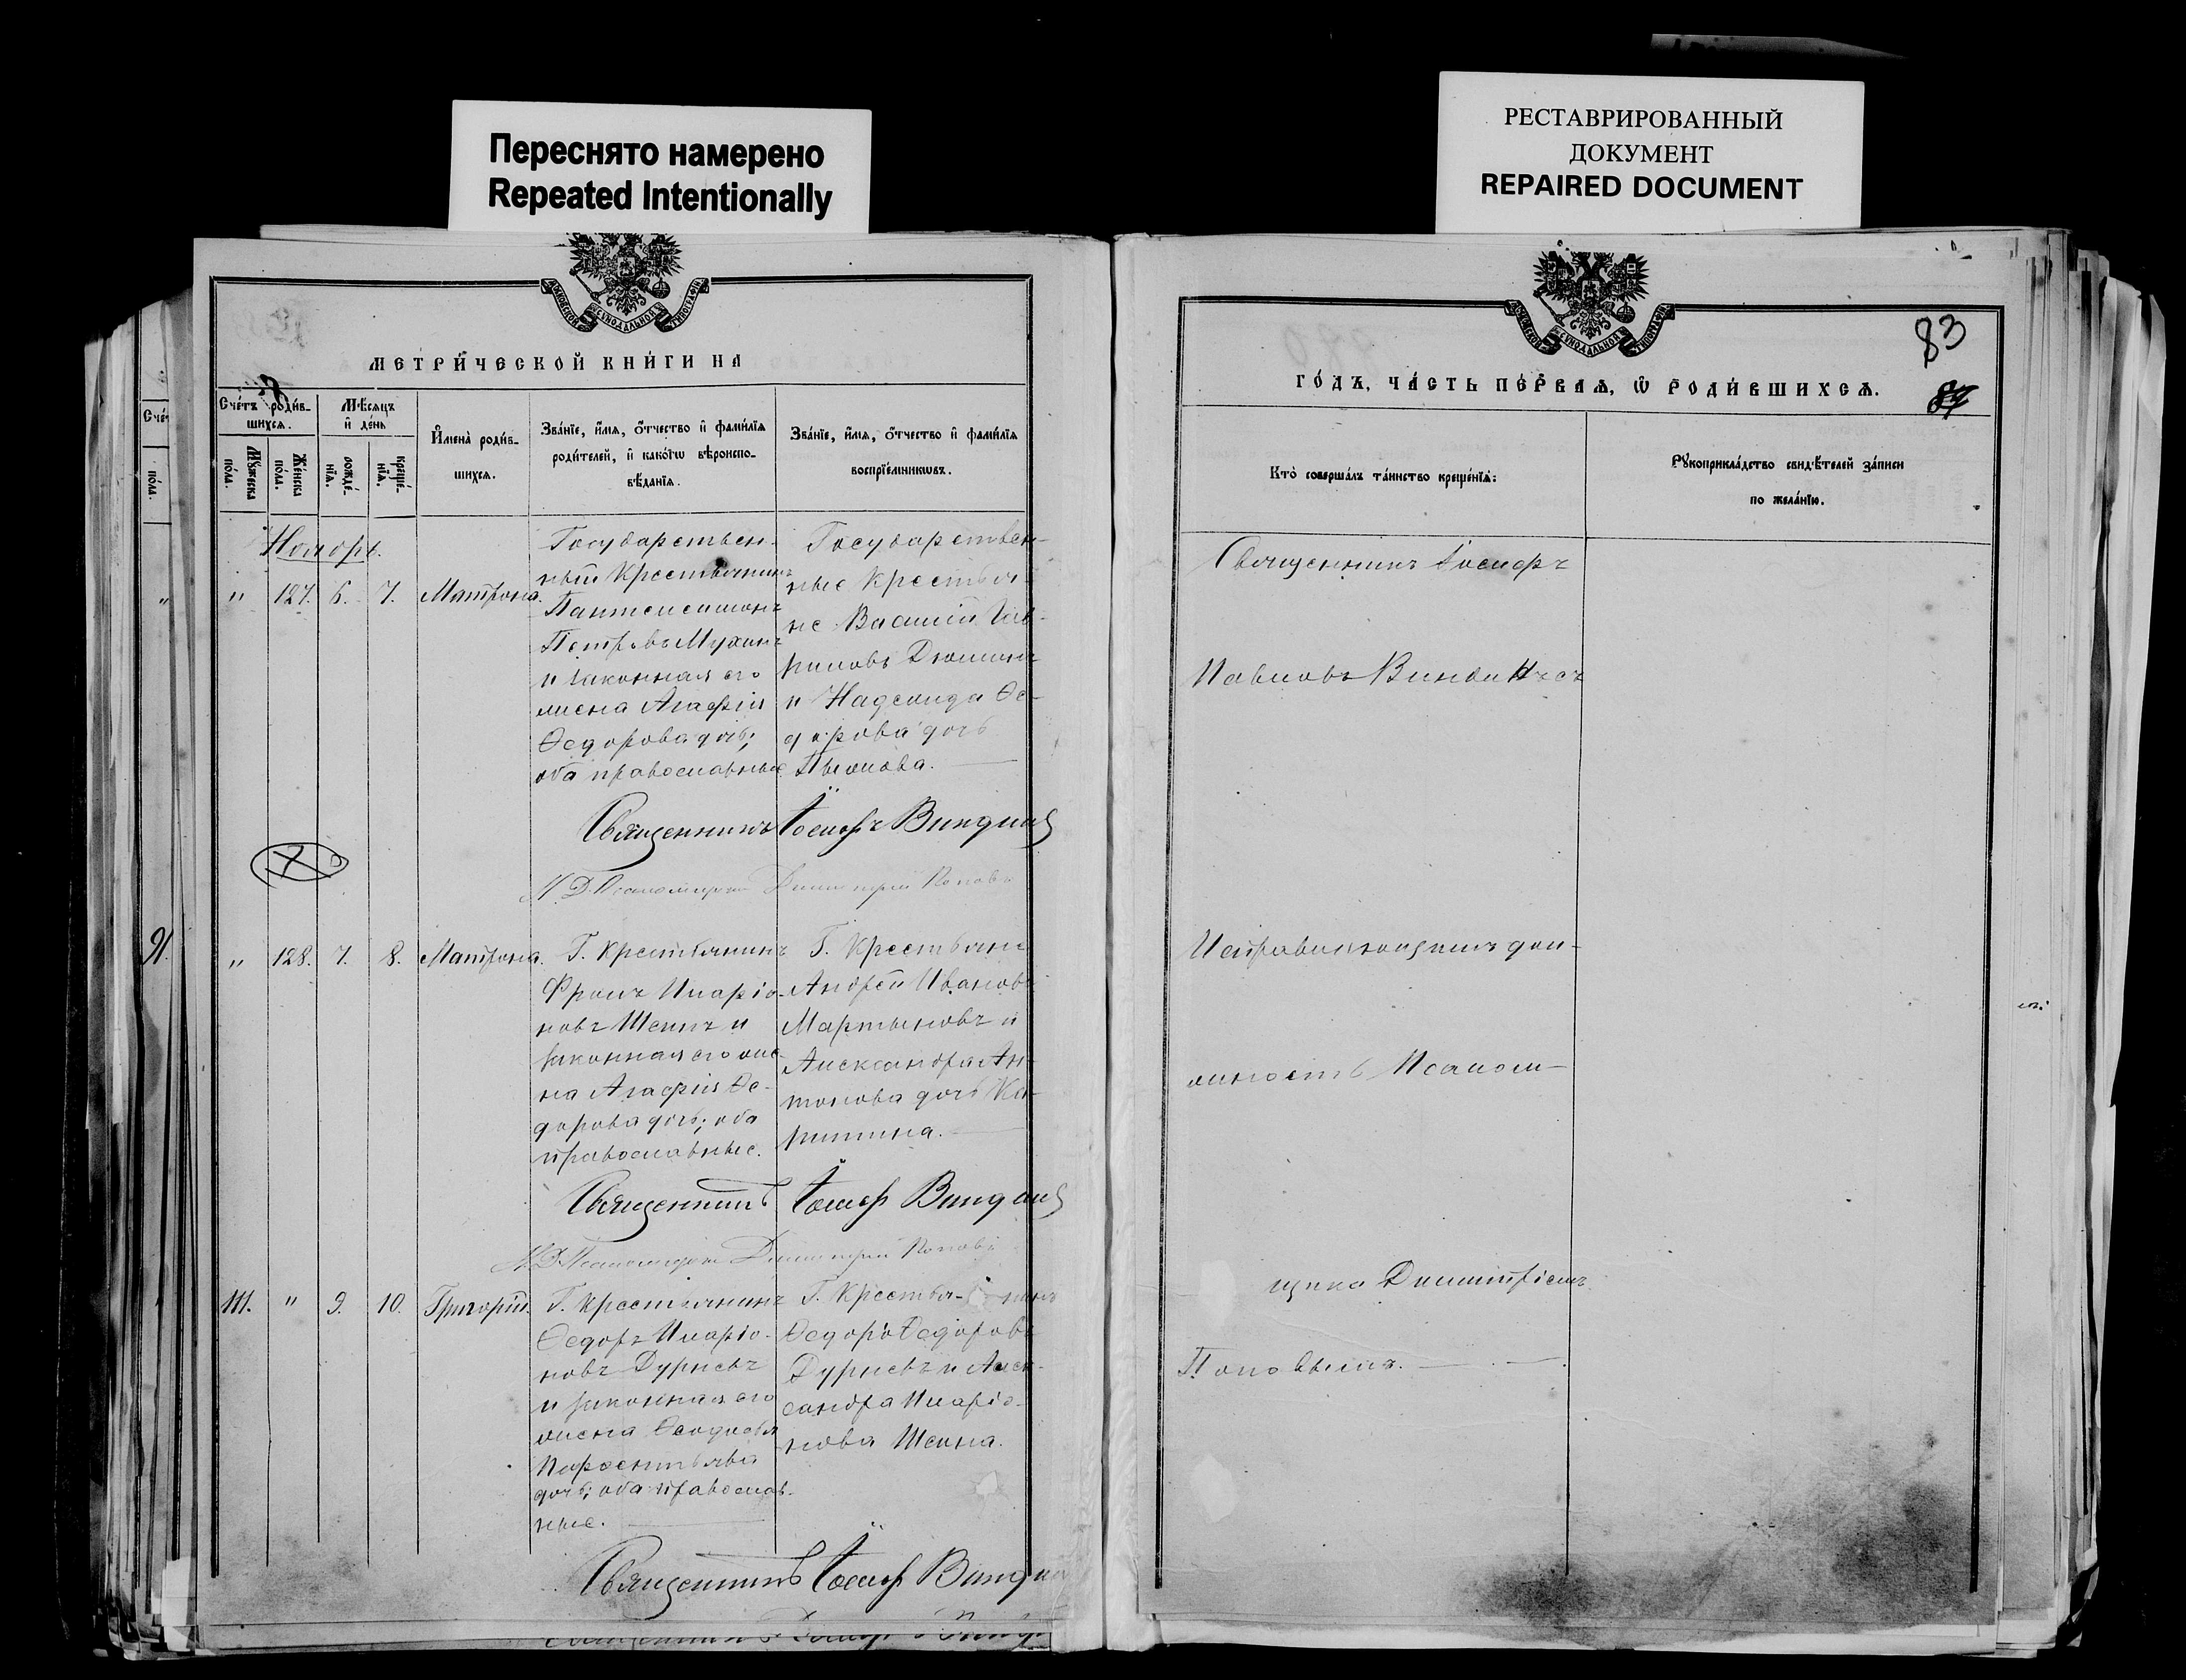 Переснято намерено
Repeated Intentionally
РЕСТАВРИРОВАННЫЙ
ДОКУМЕНТ
REPAIRED DOCUMENT
МОСКОВСКОЙ СѴНОДАЛЬНОЙ ТИПОГРАФІИ
МЕТРИ́ЧЕСКОЙ КНИ́ГИ НА
Сче́тъ роди́в-
шихсѧ.
Мꙋ́жеска
по́ла.
Же́нска
по́ла.
Мѣ́сѧцъ
и҆ де́нь
рожде́-
нїѧ.
креще́-
нїѧ.
И҆мена̀ роди́в-
шихсѧ.
Зва́нїе, и҆́мѧ, ѻ҆́тчество и҆ фами́лїѧ
роди́телей, и҆ како́гѡ вѣроиспо-
вѣ́данїѧ.
Зва́нїе, и҆́мѧ, ѻ҆́тчество и҆ фами́лїѧ
воспрїе́мникѡвъ.
Сче́т
по́ла.
Ноябрь.
" 127. 6. 7. Матрона.
Государствен-
ный Крестьянинъ
Пантелеимонъ
Петровъ Мухинъ
и законная его
жена Агафія
Ѳедорова дочь;
оба православные
Государствен-
ные крестья-
не Василій Гав-
риловъ Дюминъ
и Надежда Ѳе-
дорова дочь
Священникъ Іосифъ Виндин
И. Д. Псаломщика Димитрій Поповъ
91.
" 128. 7. 8. Матрона.
Г. Крестьянинъ
Фролъ Иларіо-
новъ Шеинъ и
законная его же-
на Агафія Ѳе-
дорова дочь; оба
православные.
Г. Крестьяне
Андрей Ивановъ
Мартыновъ и
Александра Ан-
тонова дочь Ка-
ширина.
Священникъ Іосиф Виндин
И. Д. Псаломщика Димитрій Поповъ
111. " 9. 10. Григорій.
Г. Крестьянинъ
Ѳедоръ Иларіо-
новъ Дурневъ
и законная его
жена Ѳеодосья
дочь; оба православ-
ные.
Г. Крестья- нинъ
Ѳедоръ Ѳедоровъ
Дурневъ и Алек-
сандра Иларіо-
нова Шеина.
Священникъ Іосиф Виндин
МОСКОВСКОЙ СѴНОДАЛЬНОЙ ТИПОГРАФІИ
83
ГО́ДЪ, ЧА́СТЬ ПЕ́РВАѦ, Ѡ҆ РОДИ́ВШИХСѦ.
Кто̀ соверша́лъ та́инство креще́нїѧ:
Рꙋкоприкла́дство свидѣ́телей за́писи
по жела́нїю.
Священникъ Іосифъ
Павловъ
Исправляющимъ дол-
жность Псалом-
щика Димитріемъ
Поповымъ.